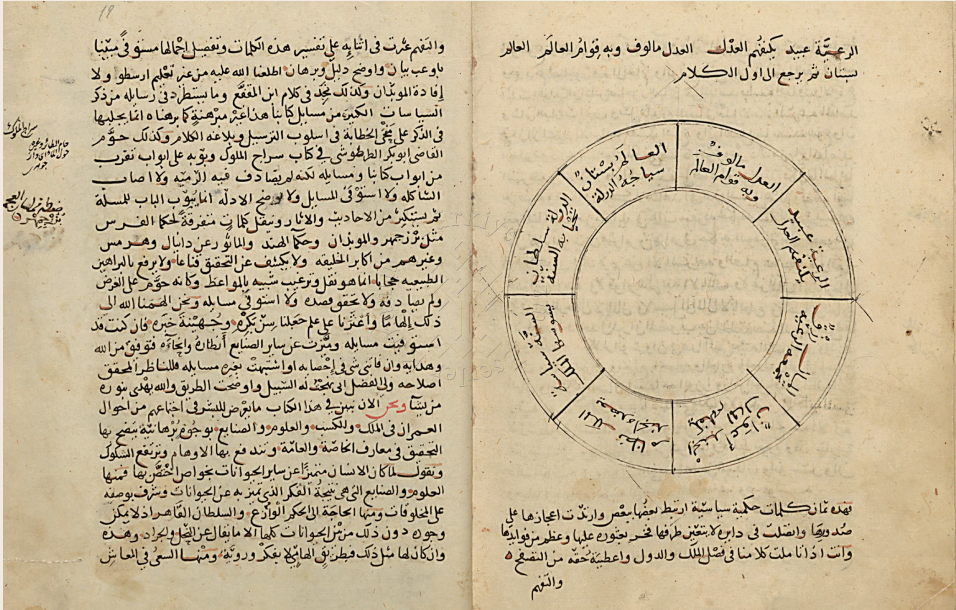 الرعيّة عبيد يكنفهم العدل العدل مالوف وبه قوام العالم العالم
بستان ثم يرجع الى اول الكلام
العالم بستان
سياجه الدولة
الدولة سلطان
تحيا به السنة
السنة سياسة
يسوسها الملك
الملك نظام
يعضده الجند
الجند اعوان
يكفلهم
المال
المال رزق
تجمعه الرعية
الرعية عبيد
يكنفهم العدل
العدل مالوف
وبه قوام العالم
فهذه ثمان كلمات حكمية سياسية ارتبط بعضها ببعض وارتدت اعجازها على
صدورها واتصلت في دايرة لا يتعين طرفها فخر بعثوره عليها وعظم من فوايدها
وانت اذا تاملت كلامنا في فصل الملك والدول واعطيته حقه من التصفح
والتفهم
والتفهم عثرت في اثنايه على تفسير هذه الكلمات وتفصيل اجمالها مستوفى مبيّنا
باوعب بيان واوضح دليل وبرهان اطلعنا الله عليه من غير تعليم ارسطو ولا
افادة الموبذان وكذلك تجد في كلام ابن المقفع وما يستطرد في رسايله من ذكر
السياسات الكثير من مسايل كتابنا هذا غير مبرهنة كما برهناه انما يجليها
في الذكر على منحى الخطابة في اسلوب الترسيل وبلاغة الكلام وكذلك حوّم
القاضي ابو بكر الطرطوشي في كتاب سراج الملوك وبوّبه على ابواب تقرب
من ابواب كتابنا ومسايله لكنه لم يصادف فيه الرمية ولا اصاب
الشاكلة ولا استوفى المسايل ولا اوضح الادلة انما يبوّب الباب للمسلة
ثم يستكثر من الاحاديث والاثار وينقل كلمات متفرقة لحكما الفرس
مثل بزرجمهر والموبذان وحكما الهند والماثور عن دانيال وهرمس
وغيرهم من اكابر الخليقة ولا يكشف عن التحقيق قناعا ولا يرفع بالبراهين
الطبيعية حجابا انما هو نقل وترغيب شبيه بالمواعظ وكانه حوّم على الغرض
ولم يصادفه ولا تحقق قصده ولا استوفى مسايله ونحن الهمنا الله الى
ذلك الهاما واعثرنا على علم جعلنا سن بكره وجهينة خبره فان كنت قد
استوفيت مسايله وميّزت عن ساير الصنايع انظاره وانحآه فتوفيق من الله
وهداية وان فاتني شي في احصايه او اشتبهت بغيره مسايله فللناظر المحقق
اصلاحه ولي الفضل اني نهجت له السبيل واوضحت الطريق والله يهدي بنوره
من يشآ ونحن الان نبين في هذا الكتاب ما يعرض للبشر في اجتماعهم من احوال
العمران في الملك والكسب والعلوم والصنايع بوجوه برهانية يتضح بها
التحقيق في معارف الخاصة والعامة وتندفع بها الاوهام وترتفع الشكوك
ونقول لما كان الانسان متميزا عن ساير الحيوانات بخواص اختص بها فمنها
العلوم والصنايع التي هي نتيجة الفكر الذي تميز به عن الحيوانات وشرف بوصفه
على المخلوقات ومنها الحاجة الى الحكم الوازع والسلطان القاهر اذ لا يمكن
وجوده دون ذلك من بين الحيوانات كلها الا ما يقال عن النحل والجراد وهذه
وان كان لها مثل ذلك فبطريق الهامي لا بفكر وروية ومنها السعي في المعاش